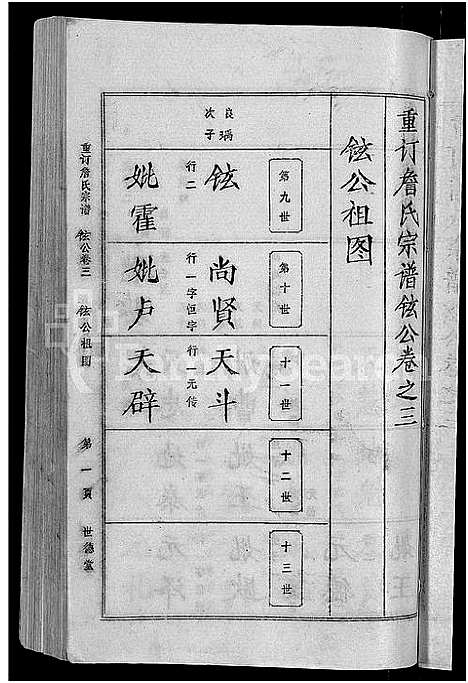 重订詹氏宗谱铉公卷之三
铉公祖图
第九世
良瑀
次子
铉
行二
妣霍
第十世
尚贤
行一字恒字
妣卢
十一世
天斗
行一元传
天辟
十二世
十三世
重订詹氏宗谱 铉公卷三 铉公祖图 第一页 世德堂
FamilySearch